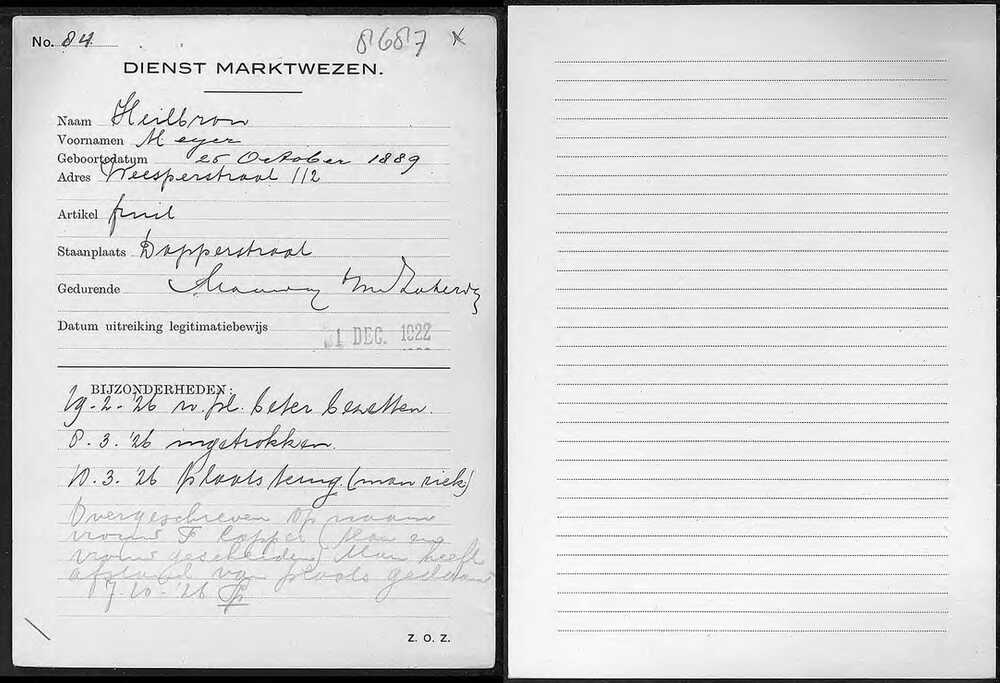 No. 84. 8687 X
DIENST MARKTWEZEN.
Naam Heilbron
Voornamen Meyer
Geboortedatum 25 October 1889
Adres Weesperstraat 112
Artikel fruit
Staanplaats Dapperstraat
Gedurende
Datum uitreiking legitimatiebewijs 1 DEC. 1922
BIJZONDERHEDEN:
19-2-'26 v. pl. beter bezetten.
8.3.'26 ingetrokken.
10.3.'26 plaats terug (man ziek)
Overgeschreven op naam
vrouw F Copper (Man en
vrouw gescheiden) Man heeft
afstand van plaats gedaan
17-10-'26
Z. O. Z.